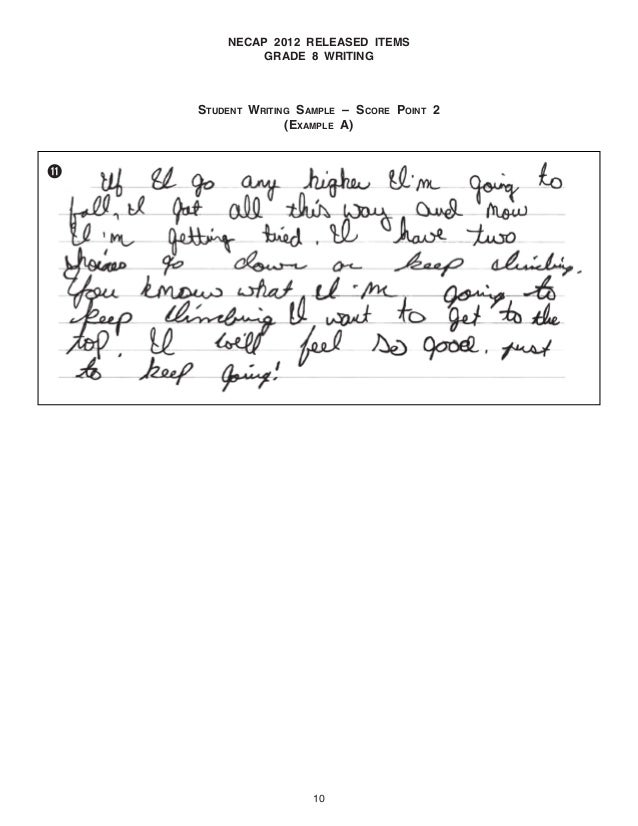 NECAP 2012 RELEASED ITEMS
GRADE 8 WRITING
STUDENT WRITING SAMPLE – SCORE POINT 2
(EXAMPLE A)
11
If I go any higher I'm going to
fall, I got all this way and now
I'm getting tired. I have two
choices go down or keep climbing.
You know what I'm going to
keep climbing I want to get to the
top! I will feel so good. just
to keep going!
10